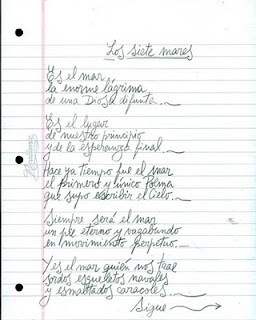 Los siete mares
Es el mar
la enorme lágrima
de una Diosa difunta.
Es el lugar
de nuestro principio
y de la esperanza final.
Hace ya tiempo fue el mar
el primero y único poema
que supo escribir el Cielo.
Siempre será el mar
un pez eterno y vagabundo
en movimiento perpetuo.
Y es el mar quién nos trae
sordos esqueletos navales
y esmaltados caracoles.
Sigue